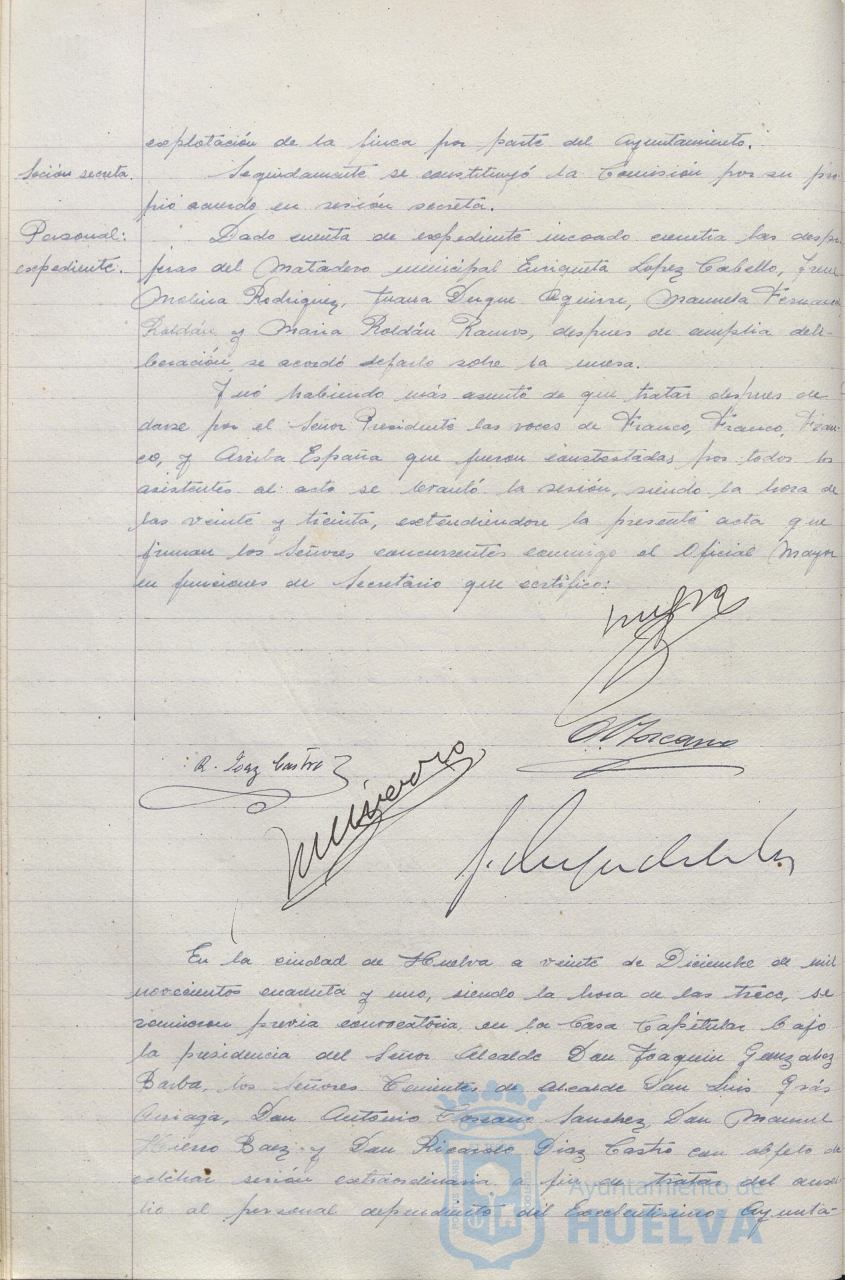 explotación de la finca por parte del Ayuntamiento.
Seción secreta.
Seguidamente se constituyó la Comisión por su pro-
pio acuerdo en sesión secreta.
Personal:
expediente.
Dado cuenta de expediente incoado contra las despo-
jeras del Matadero municipal Enriqueta López Cabello, Irene
Molina Rodriguez, Juana Duque Aguirre, Manuela Fernandez
Roldán y Maria Roldán Ramos, despues de amplia deli-
beración, se acordó dejarlo sobre la mesa.
Y nó habiendo más asunto de que tratar despues de
darse por el Señor Presidente las voces de Franco, Franco, Fran-
co, y Arriba España que fueron constestadas por todos los
asistentes al acto se levantó la sesión, siendo la hora de
las veinte y treinta, extendiendose la presente acta que
firman los Señores concurrentes conmigo el Oficial Mayor
en funciones de Secretario que certifico:
A. Toscano
R. Diaz Castro
En la ciudad de Huelva a veinte de Diciembre de mil
novecientos cuarenta y uno, siendo la hora de las trece, se
reunieron previa convocatoria, en la Casa Capitular bajo
la presidencia del Señor Alcalde Don Joaquin Gonzalez
Barba, los Señores Tenientes de Alcalde Don Luis Grás
Arriaga, Don António Toscano Sanchez, Don Manuel
Hierro Baez y Don Ricardo Diaz Castro con objeto de
celebrar sesión extraordinaria a fin de tratar del auxi-
lio al personal dependiente del Excelentisimo Ayunta-
Ayuntamiento de
HUELVA